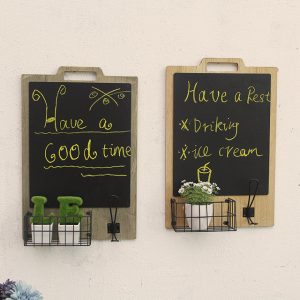 Have a
GOOD time
LE
Have a Rest
x Driking
x ice cream